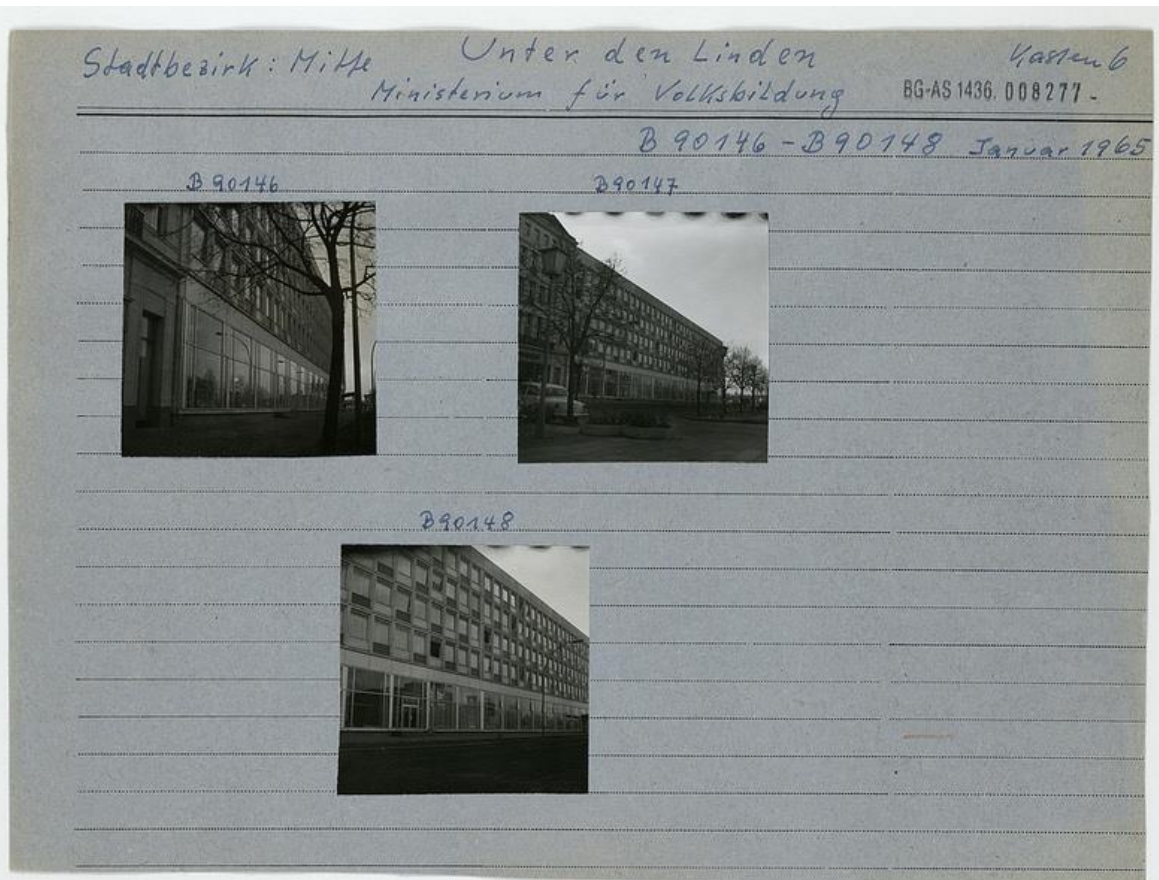 Stadtbezirk: Mitte Unter den Linden Kasten 6
Ministerium für Volksbildung BG-AS 1436. 008277-
B 90146 - B 90148 Januar 1965
B 90146 B90147
B90148